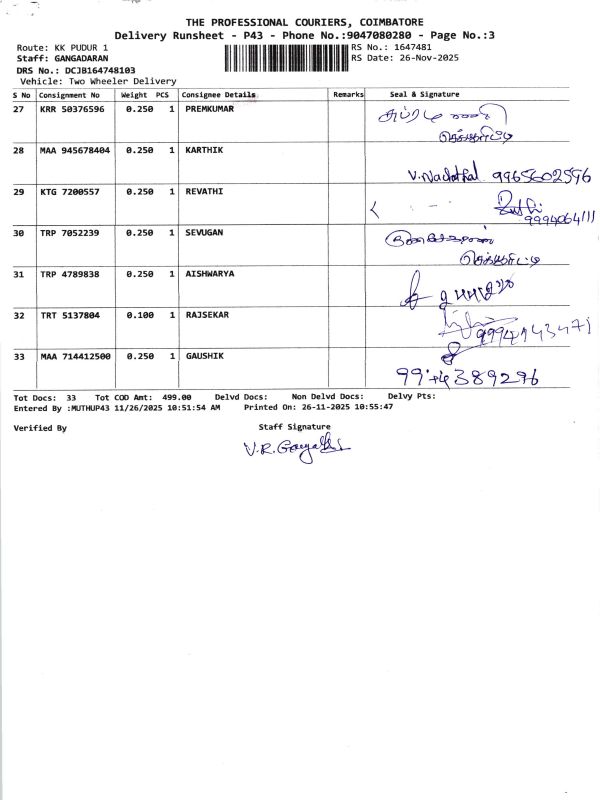 THE PROFESSIONAL COURIERS, COIMBATORE
Delivery Runsheet - P43 - Phone No.:9047080280 - Page No.:3
Route: KK PUDUR 1 RS No.: 1647481
Staff: GANGADARAN RS Date: 26-Nov-2025
DRS No.: DCJB164748103
Vehicle: Two Wheeler Delivery
S No Consignment No Weight PCS Consignee Details Remarks Seal & Signature
27 KRR 50376596 0.250 1 PREMKUMAR
28 MAA 945678404 0.250 1 KARTHIK
9965602596
29 KTG 7200557 0.250 1 REVATHI
30 TRP 7052239 0.250 1 SEVUGAN
31 TRP 4789838 0.250 1 AISHWARYA
32 TRT 5137804 0.100 1 RAJSEKAR
33 MAA 714412500 0.250 1 GAUSHIK
Tot Docs: 33 Tot COD Amt: 499.00 Delvd Docs: Non Delvd Docs: Delvy Pts:
Entered By :MUTHUP43 11/26/2025 10:51:54 AM Printed On: 26-11-2025 10:55:47
Verified By Staff Signature